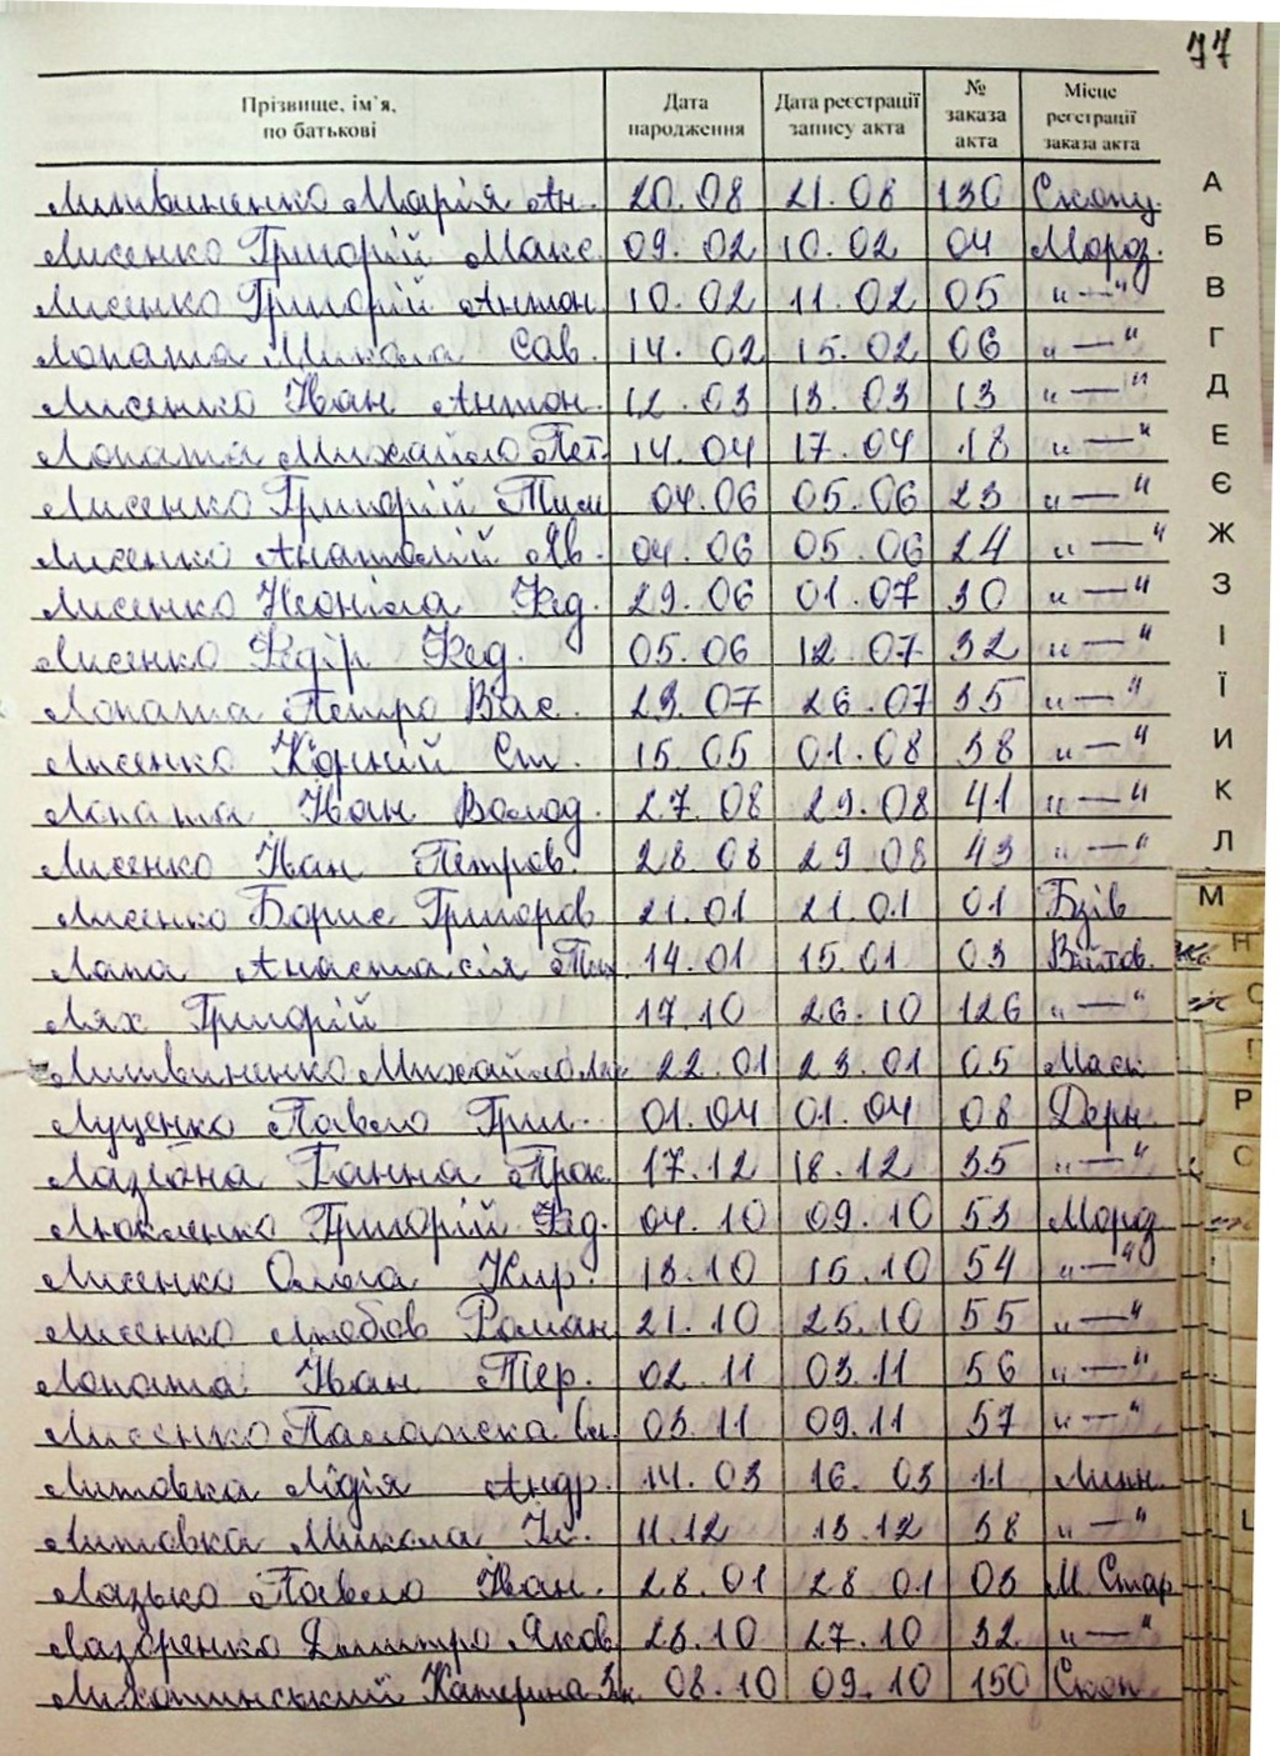 77
Прізвище, ім'я, по батькові | Дата народження | Дата реєстрації запису акта | № заказа акта | Місце реєстрації заказа акта
Литвиненко Марія Ан. 20.08 21.08 130 Скопц.
Лисенко Григорій Макс. 09.02 10.02 04 Мороз.
Лисенко Григорій Антон. 10.02 11.02 05 "—"
Лопата Микола Сав. 14.02 15.02 06 "—"
Лисенко Іван Антон. 12.03 13.03 13 "—"
Лопата Михайло Пет. 14.04 17.04 18 "—"
Лисенко Григорій Тим 04.06 05.06 23 "—"
Лисенко Анатолій Як. 04.06 05.06 24 "—"
Лисенко Неоніла Фед. 29.06 01.07 30 "—"
Лисенко Федір Фед. 05.06 12.07 32 "—"
Лопата Петро Вас. 23.07 26.07 35 "—"
Лисенко Корній Ст. 15.05 01.08 38 "—"
Лопата Іван Волод. 27.08 29.08 41 "—"
Лисенко Іван Петров. 28.08 29.08 43 "—"
Лисенко Борис Григоров 21.01 21.01 01 Бзів
Лапа Анастасія 14.01 15.01 03 Війтов.
Лях Григорій 17.10 26.10 126 "—"
Литвиненко Михайло 22.01 23.01 05 Маск
Луценко Павло Григ. 01.04 01.04 08 Дерн.
Ганна Прок. 17.12 18.12 35 "—"
Григорій Фед. 04.10 09.10 53 Мороз
Лисенко Ольга Кир. 13.10 15.10 54 "—"
Лисенко Любов Роман 21.10 25.10 55 "—"
Лопата Іван Тер. 02.11 03.11 56 "—"
Лисенко Палажка 03.11 09.11 57 "—"
Литовка Лідія Андр. 14.03 16.03 11 Липн.
Литовка Микола 11.12 13.12 38 "—"
Лазько Павло Іван. 28.01 28.01 03 М. Стар
Лазоренко Дмитро Яков. 23.10 27.10 32 "—"
Катерина 08.10 09.10 150 Скоп
А
Б
В
Г
Д
Е
Є
Ж
З
І
Ї
И
К
Л
М
Н
О
П
Р
С